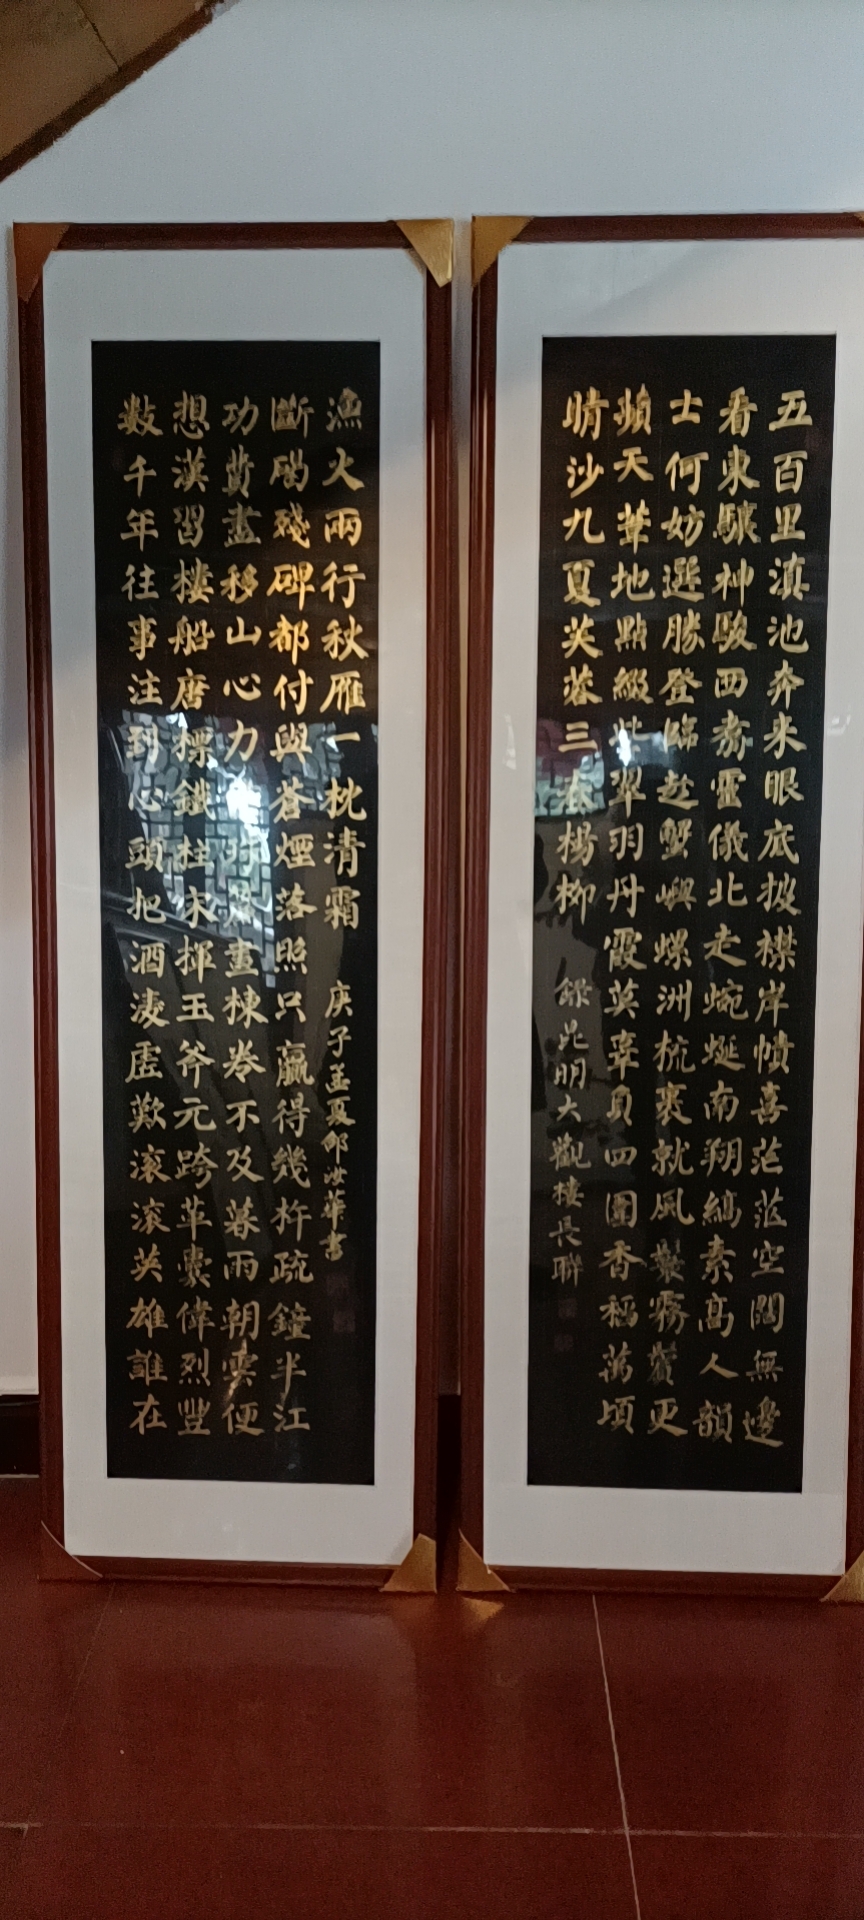 五百里滇池奔来眼底披襟岸幘喜茫茫空闊無邊
看東驤神駿西翥靈儀北走蜿蜒南翔縞素高人韻
士何妨選勝登臨趁蟹嶼螺洲梳裹就風鬟霧鬢更
蘋天葦地點綴些翠羽丹霞莫辜負四圍香稻萬頃
晴沙九夏芙蓉三春楊柳
録昆明大觀樓長聯
数千年往事注到心頭把酒凌虛歎滾滾英雄誰在
想漢習樓船唐標鐵柱宋揮玉斧元跨革囊偉烈豐
功費盡移山心力珠簾畫棟卷不及暮雨朝雲便
斷碣殘碑都付與蒼煙落照只贏得幾杵疏鐘半江
漁火兩行秋雁一枕清霜
庚子孟夏邵汝華書